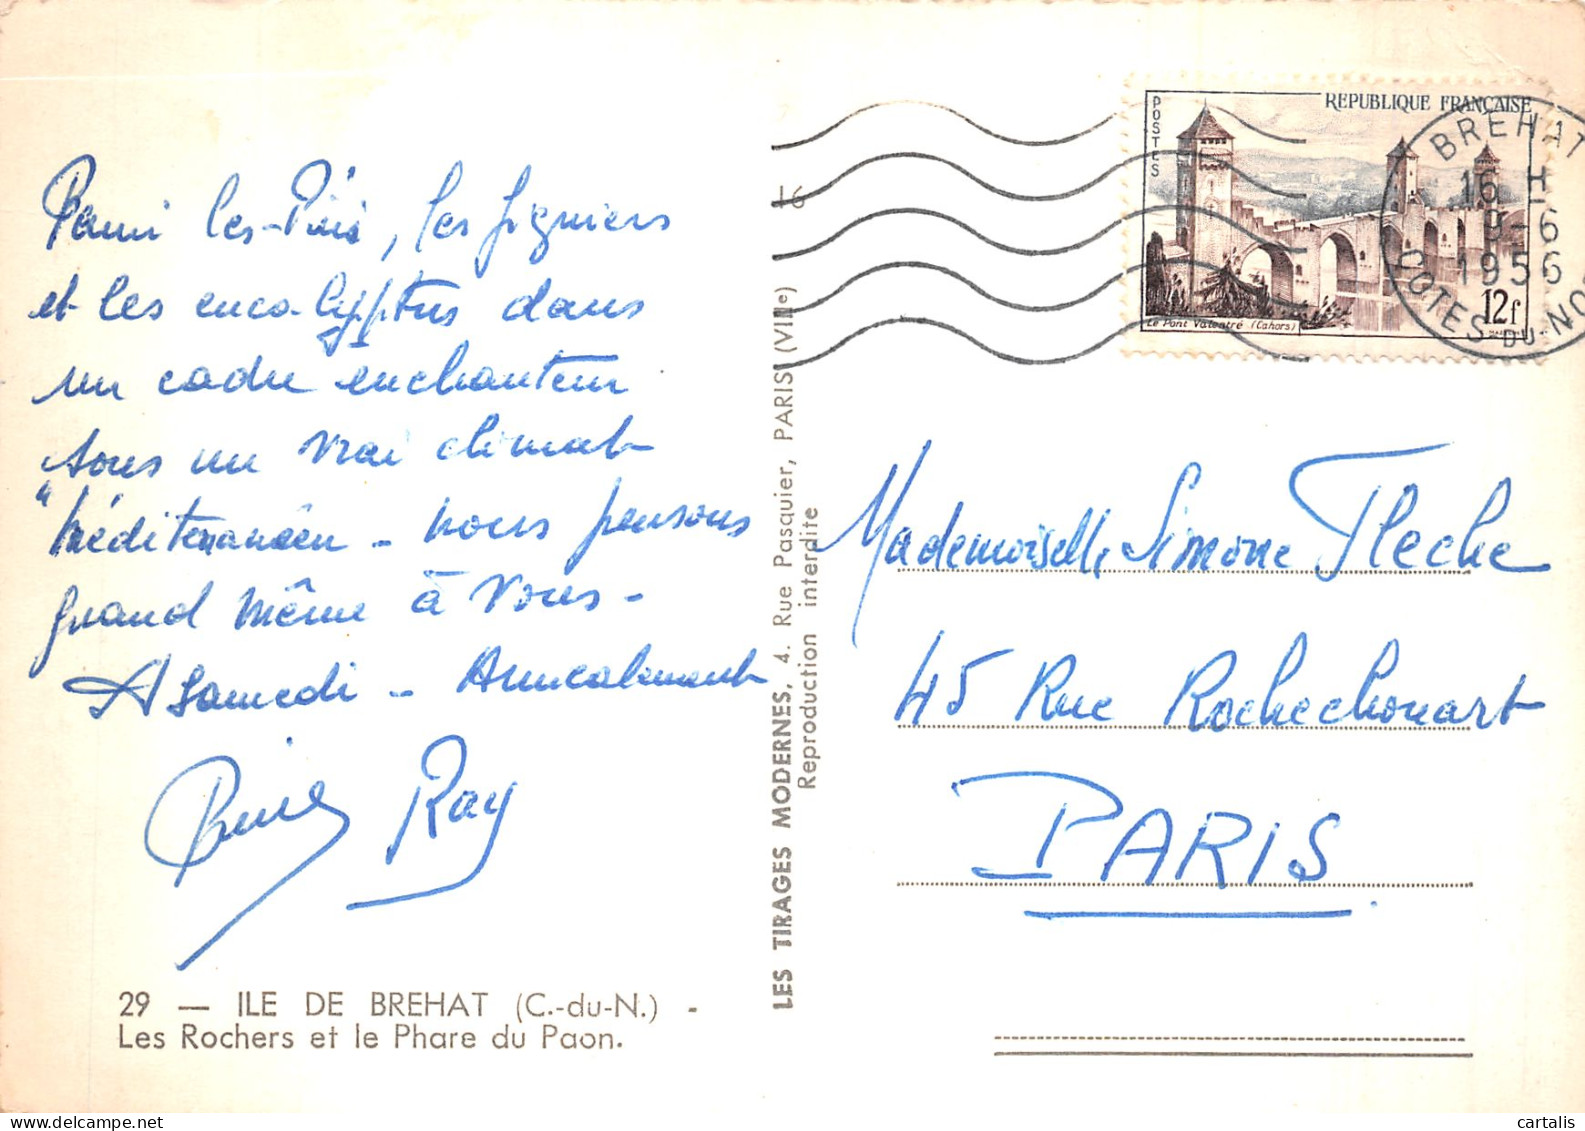 Parmi les Pins, les figuiers
et les eucalyptus dans
un cadre enchanteur
sous un vrai climat
"Méditerranéen - nous pensons
quand même à vous -
A Samedi - Amicalement
Ray
29 — ILE DE BREHAT (C.-du-N.) -
Les Rochers et le Phare du Paon.
LES TIRAGES MODERNES, 4. Rue Pasquier, PARIS (VIIIe)
Reproduction interdite
POSTES
REPUBLIQUE FRANÇAISE
Le Pont Valentré (Cahors)
12f
BREHAT
16 H
9-6
1956
COTES-DU-NO
Mademoiselle Simone Fleche
45 Rue Rochechouart
PARIS
cartalis